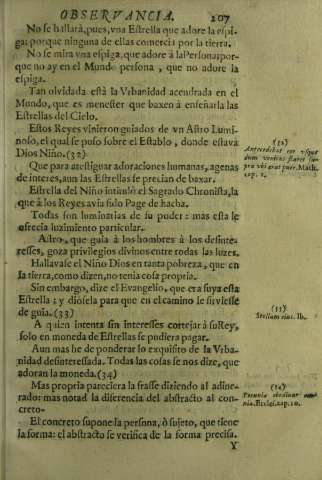 OBSERVANCIA. 207
No se hallarà, pues, vna Estrella que adore la espi-
ga: porque ninguna de ellas comercia por la tierra.
No se mira vna espiga, que adore à la Persona: por-
que no ay en el Mundo persona, que no adore la
espiga.
Tan olvidada està la Vrbanidad acendrada en el
Mundo, que es menester que baxen à enseñarla las
Estrellas del Cielo.
Estos Reyes vinieron guiados de vn Astro Lumi-
noso, el qual se puso sobre el Establo, donde estava
Dios Niño. (32)
Que para atestiguar adoraciones humanas, agenas
de interès, aun las Estrellas se precian de baxar.
Estrella del Niño intitulò el Sagrado Chronista, la
que à los Reyes avia sido Page de hacha.
Todas son luminarias de su poder: mas esta le
ofrecia luzimiento particular.
Astro, que guia à los hombres à los desinte-
resses, goza privilegios divinos entre todas las luzes.
Hallavase el Niño Dios en tanta pobreza, que en
la tierra, como dizen, no tenia cosa propria.
Sin embargo, dize el Evangelio, que era suya esta
Estrella: y diòsela para que en el camino le sirviesse
de guia. (33)
A quien intenta sin interesses cortejar à su Rey,
solo en moneda de Estrellas se pudiera pagar.
Aun mas he de ponderar lo exquisito de la Vrba-
nidad desinteressada. Todas las cosas se nos dize, que
adoran la moneda. (34)
Mas propria pareciera la frasse diziendo al adine-
rado: mas notad la diferencia del abstracto al con-
creto.
El concreto supone la persona, ò sujeto, que tiene
la forma: el abstracto se verifica de la forma precisa.
Y
(32)
Antecedebat eos vsque
dum veniens staret su-
pra vbi erat puer. Math.
cap. 2.
(33)
Stellam eius. Ib.
(34)
Pecuniæ obediunt om-
nia. Eccles. cap. 10.